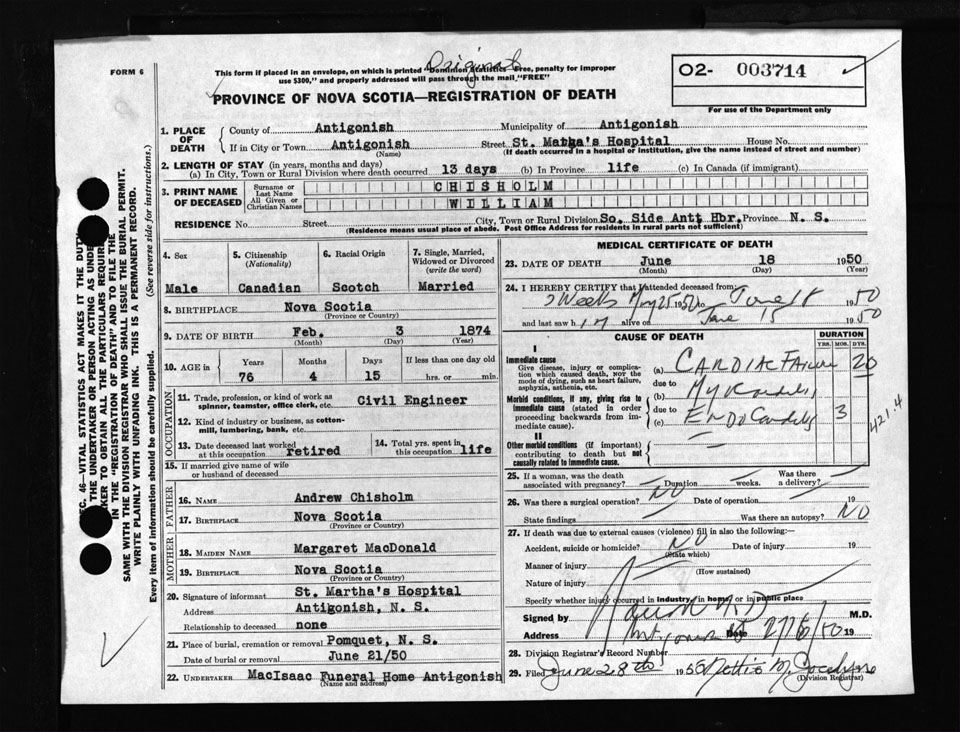 FORM 6
Original
This form if placed in an envelope, on which is printed "Dominion Statistics—Free, penalty for improper
use $300," and properly addressed will pass through the mail "FREE"
02- 003714
For use of the Department only
PROVINCE OF NOVA SCOTIA—REGISTRATION OF DEATH
1. PLACE OF DEATH
County of Antigonish Municipality of Antigonish
If in City or Town Antigonish Street St. Matha's Hospital House No.
(Name) (If death occurred in a hospital or institution, give the name instead of street and number)
2. LENGTH OF STAY (in years, months and days)
(a) In City, Town or Rural Division where death occurred 13 days (b) In Province life (c) In Canada (if immigrant)
3. PRINT NAME OF DECEASED
Surname or Last Name CHISHOLM
All Given or Christian Names WILLIAM
RESIDENCE No. Street City, Town or Rural Division So. Side Antt Hbr. Province N. S.
(Residence means usual place of abode. Post Office Address for residents in rural parts not sufficient)
4. Sex
Male
5. Citizenship
(Nationality)
Canadian
6. Racial Origin
Scotch
7. Single, Married, Widowed or Divorced
(write the word)
Married
8. BIRTHPLACE Nova Scotia
(Province or Country)
9. DATE OF BIRTH Feb. 3 1874
(Month) (Day) (Year)
10. AGE in
Years Months Days If less than one day old
76 4 15 hrs. or min.
OCCUPATION
11. Trade, profession, or kind of work as
spinner, teamster, office clerk, etc. Civil Engineer
12. Kind of industry or business, as cotton-
mill, lumbering, bank, etc.
13. Date deceased last worked
at this occupation retired
14. Total yrs. spent in
this occupation life
15. If married give name of wife
or husband of deceased
FATHER
16. NAME Andrew Chisholm
17. BIRTHPLACE Nova Scotia
(Province or Country)
MOTHER
18. MAIDEN NAME Margaret MacDonald
19. BIRTHPLACE Nova Scotia
(Province or Country)
20. Signature of informant St. Martha's Hospital
Address Antigonish, N. S.
Relationship to deceased none
21. Place of burial, cremation or removal Pomquet, N. S.
Date of burial or removal June 21/50
22. UNDERTAKER MacIsaac Funeral Home Antigonish
(Name and address)
MEDICAL CERTIFICATE OF DEATH
23. DATE OF DEATH June 18 1950
(Month) (Day) (Year)
24. I HEREBY CERTIFY that I attended deceased from:
2 Weeks May 25 1950 to June 18 1950
and last saw him alive on June 15 1950
CAUSE OF DEATH
DURATION
YRS. MOS. DYS.
I
Immediate cause
Give disease, injury or complica-
tion which caused death, NOT the
mode of dying, such as heart failure,
asphyxia, asthenia, etc.
(a) CARDIAC FAILURE 20
due to
Morbid conditions, if any, giving rise to
immediate cause (stated in order
proceeding backwards from im-
mediate cause).
(b) Myocarditis
due to
(c) Endocarditis 3
421.4
II
Other morbid conditions (if important)
contributing to death but not
causally related to immediate cause.
25. If a woman, was the death Was there
associated with pregnancy? Duration weeks. a delivery?
26. Was there a surgical operation? NO Date of operation 19
State findings Was there an autopsy? NO
27. If death was due to external causes (violence) fill in also the following:—
Accident, suicide or homicide? NO Date of injury 19
(State which)
Manner of injury
(How sustained)
Nature of injury
Specify whether injury occurred in industry, in home, or in public place
Signed by M.D.
Address Antigonish Date 27/6/50 19
28. Division Registrar's Record Number
29. Filed June 28th 1950 Nettie M. Jocelyne
(Division Registrar)
SEC. 46—VITAL STATISTICS ACT MAKES IT THE DUTY
THE UNDERTAKER OR PERSON ACTING AS UNDER
TAKER TO OBTAIN ALL THE PARTICULARS REQUIRED
IN THE "REGISTRATION OF DEATH" AND TO FILE THE
SAME WITH THE DIVISION REGISTRAR WHO SHALL ISSUE THE BURIAL PERMIT.
WRITE PLAINLY WITH UNFADING INK. THIS IS A PERMANENT RECORD.
Every item of information should be carefully supplied. (See reverse side for instructions.)